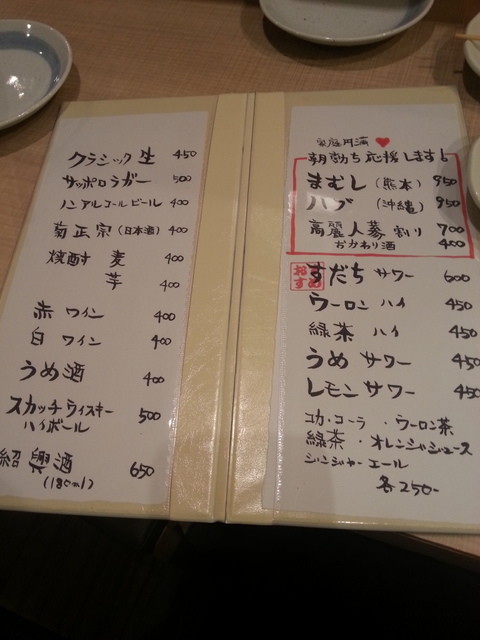 クラシック 生 450
サッポロラガー 500
ノンアルコールビール 400
菊正宗(日本酒) 400
焼酎 麦 400
芋 400
赤 ワイン 400
白 ワイン 400
うめ酒 400
スカッチウィスキー
ハイボール 500
紹興酒 650
(180ml)
家庭円満 ♥
朝勃ち応援します!
まむし (熊本) 950
ハブ (沖縄) 950
高麗人蔘 割り 700
おかわり酒 400
おすすめ すだち サワー 600
ウーロン ハイ 450
緑茶 ハイ 450
うめ サワー 450
レモン サワー 450
コカ・コーラ ・ウーロン茶
緑茶 ・オレンジジュース
ジンジャーエール
各250-